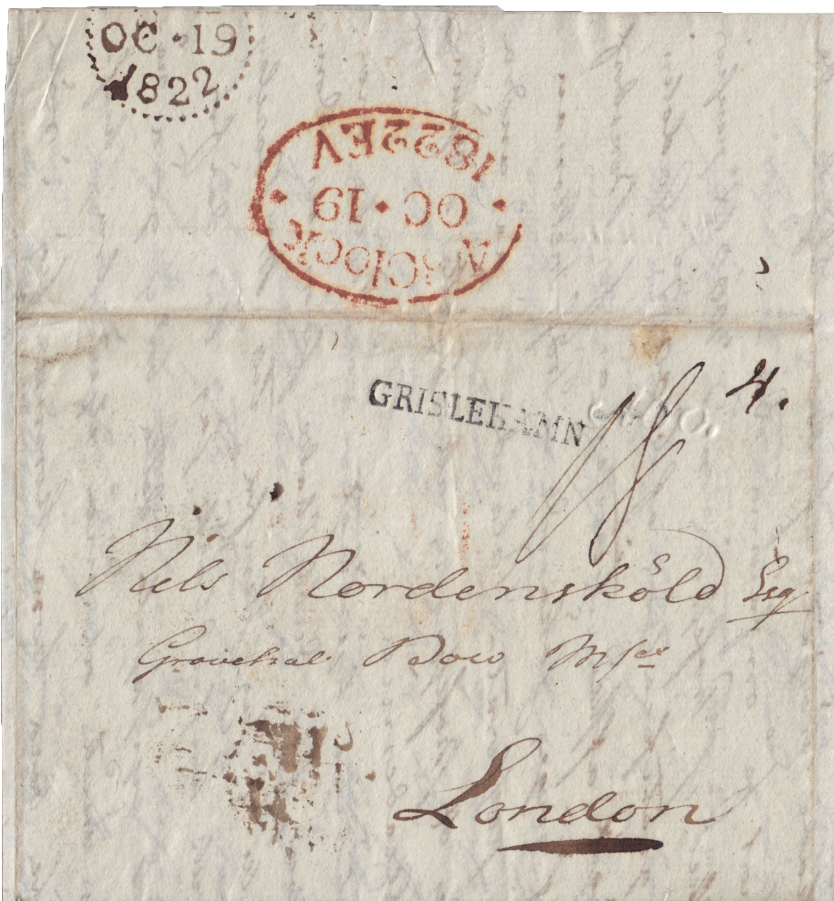 OC · 19
1822
4 o'Clock
OC · 19
1822 EV
4.
GRISLEHAMN
Nils Nordensköld Esq
Bow Msex
London